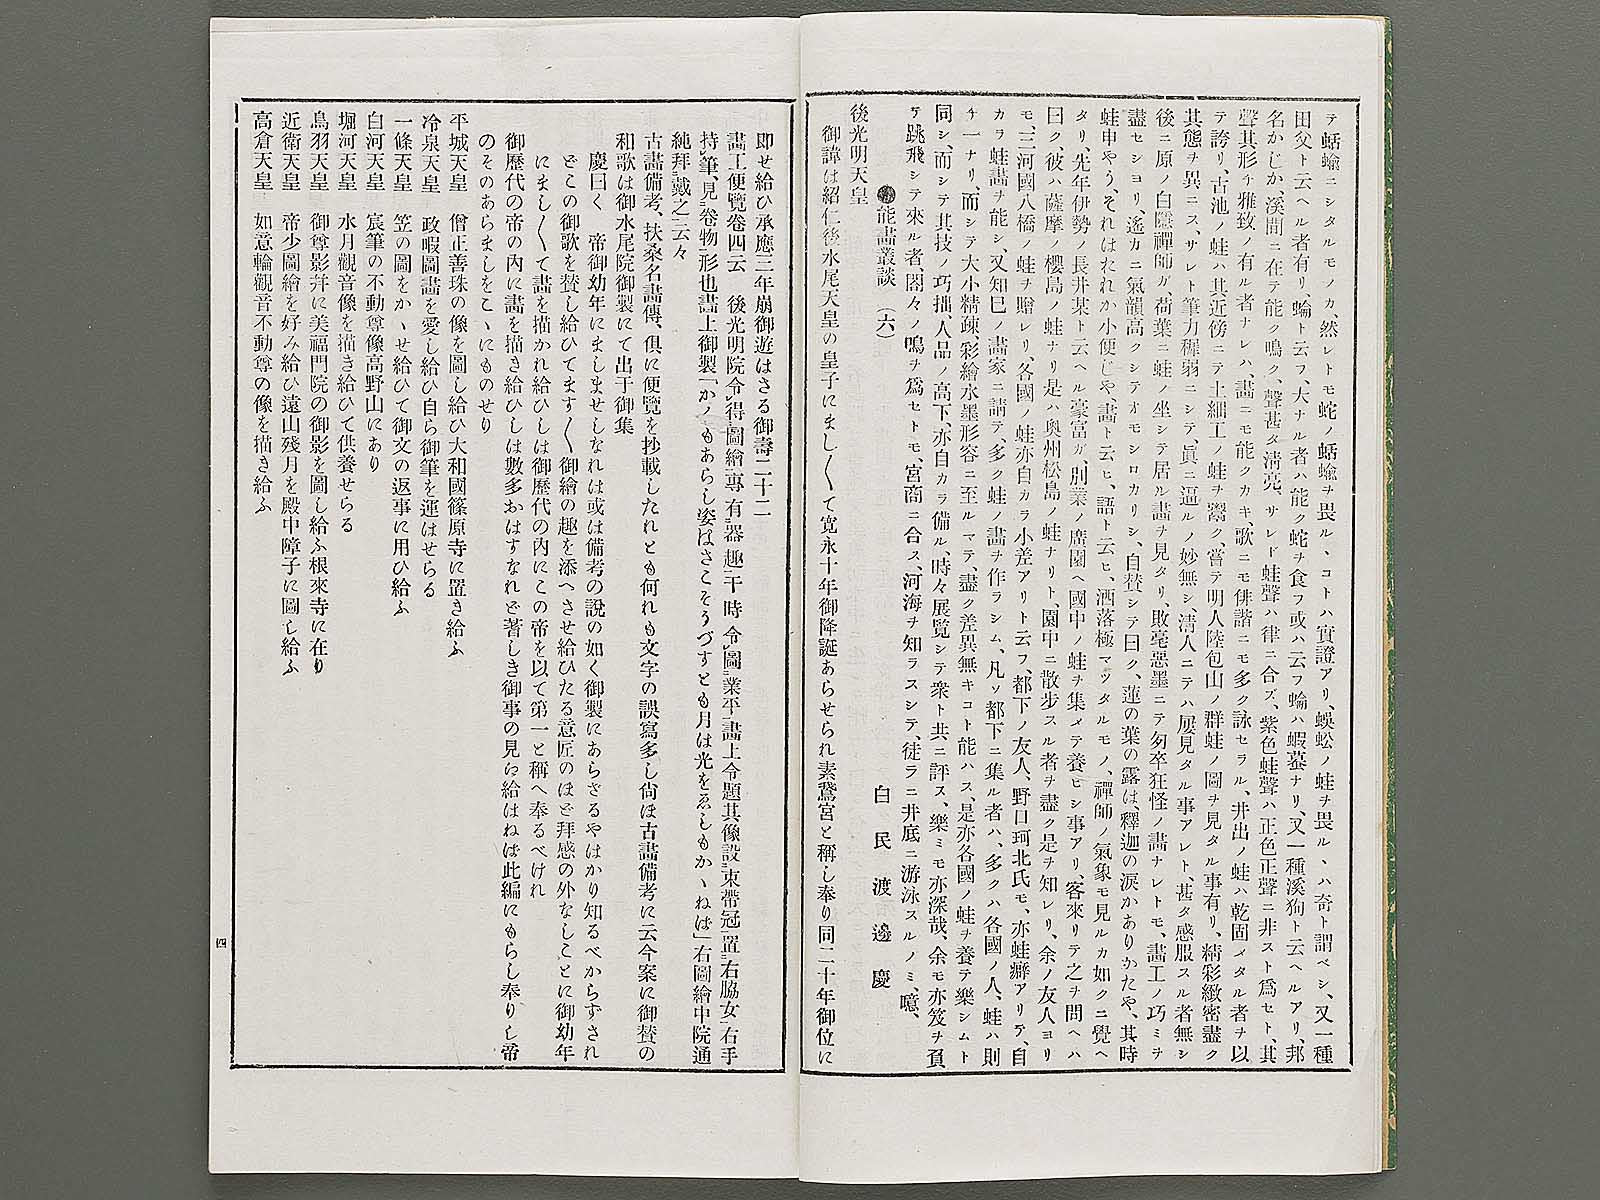 テ蛞蝓ニシタルモノカ、然レトモ蛇ノ蛞蝓ヲ畏ル、コトハ實證アリ、蜈蚣ノ蛙ヲ畏ル、ハ奇ト謂ベシ、又一種
田父ト云ヘル者有リ、蝓ト云フ、大ナル者ハ能ク蛇ヲ食フ或ハ云フ蝓ハ蝦蟇ナリ、又一種溪狗ト云ヘルアリ、邦
名かじか、溪間ニ在テ能ク鳴ク、聲甚タ淸亮、サレド蛙聲ハ律ニ合ズ、紫色蛙聲ハ正色正聲ニ非スト爲セト、其
聲其形チ雅致ノ有ル者ナレハ、畵ニモ能クカキ、歌ニモ俳諧ニモ多ク詠セラル、井出ノ蛙ハ乾固メタル者ヲ以
テ誇リ、古池ノ蛙ハ其近傍ニテ土細工ノ蛙ヲ鬻ク、嘗テ明人陸包山ノ群蛙ノ圖ヲ見タル事有リ、精彩緻密盡ク
其態ヲ異ニス、サレト筆力穉弱ニシテ、眞ニ逼ルノ妙無シ、淸人ニテハ屢見タル事アレト、甚タ感服スル者無シ
後ニ原ノ白隱禪師ガ荷葉ニ蛙ノ坐シテ居ル畵ヲ見タリ、敗毫惡墨ニテ匆卒狂怪ノ畵ナレトモ、畵工ノ巧ミヲ
盡セシヨリ、遙カニ氣韻高クシテオモシロカリシ、自賛シテ曰ク、蓮の葉の露は、釋迦の涙かありかたや、其時
蛙申やう、それはたれか小便じや、畵ト云ヒ、語ト云ヒ、洒落極マツタルモノ、禪師ノ氣象モ見ルカ如クニ覺ヘ
タリ、先年伊勢ノ長井某ト云ヘル豪富ガ、別業ノ廣園ヘ國中ノ蛙ヲ集メテ養ヒシ事アリ、客來リテ之ヲ問ヘハ
曰ク、彼ハ薩摩ノ櫻島ノ蛙ナリ是ハ奧州松島ノ蛙ナリト、園中ニ散歩スル者ヲ盡ク是ヲ知レリ、余ノ友人ヨリ
モ、三河國八橋ノ蛙ヲ贈レリ、各國ノ蛙亦自カラ小差アリト云フ、都下ノ友人、野口珂北氏モ、亦蛙癖アリテ、自
カラ蛙畵ヲ能シ、又知巳ノ畵家ニ請テ、多ク蛙ノ畵ヲ作ラシム、凡ソ都下ニ集ル者ハ、多クハ各國ノ人、蛙ハ則
チ一ナリ、而シテ大小精疎、彩繪水墨形容ニ至ルマテ、盡ク差異無キコト能ハス、是亦各國ノ蛙ヲ養テ樂シムト
同シ、而シテ其技ノ巧拙、人品ノ高下、亦自カラ備ル、時々展覧シテ衆ト共ニ評ス、樂ミモ亦深哉、余モ亦笈ヲ負
テ跳飛シテ來ル者、閤々ノ鳴ヲ爲セトモ、宮商ニ合ス、河海ヲ知ラスシテ、徒ラニ井底ニ游泳スルノミ、噫、
能畵叢談（六）　白民渡邊慶
後光明天皇
御諱は紹仁後水尾天皇の皇子にまし〳〵て寛永十年御降誕あらせられ素鵞宮と稱し奉り同二十年御位に
即せ給ひ承應三年崩御遊はさる御壽二十二
畵工便覽卷四云　後光明院令得圖繪專有器趣干時令圖業平畵上令題其像設束帶冠置右脇女右手
持筆、見卷物形也畵上御製「かノもあらし姿ばさこそうづすとも月は光をゑしもかゝねば」右圖繪中院通
純拜戴之云々
古畵備考、扶桑名畵傳、倶に便覽を抄載したれとも何れも文字の誤寫多し尙ほ古畵備考に云今案に御賛の
和歌は御水尾院御製にて出于御集
慶曰く　帝御幼年にましませしなれは或は備考の說の如く御製にあらさるやはかり知るべからずされ
どこの御歌を賛し給ひてます〳〵御繪の趣を添へさせ給ひたる意匠のほど拜感の外なしことに御幼年
にまし〳〵て畵を描かれ給ひしは御歷代の內にこの帝を以て第一と稱へ奉るべけれ
御歷代の帝の內に畵を描き給ひしは數多おはすなれど著しき御事の見に給はねば此編にもらし奉りし帝
のそのあらましをこゝにものせり
平城天皇　僧正善珠の像を圖し給ひ大和國篠原寺に置き給ふ
冷泉天皇　政暇圖畵を愛し給ひ自ら御筆を運はせらる
一條天皇　笠の圖をかゝせ給ひて御文の返事に用ひ給ふ
白河天皇　宸筆の不動尊像高野山にあり
堀河天皇　水月觀音像を描き給ひて供養せらる
鳥羽天皇　御尊影幷に美福門院の御影を圖し給ふ根來寺に在り
近衛天皇　帝少圖繪を好み給ひ遠山殘月を殿中障子に圖し給ふ
高倉天皇　如意輪觀音不動尊の像を描き給ふ
四